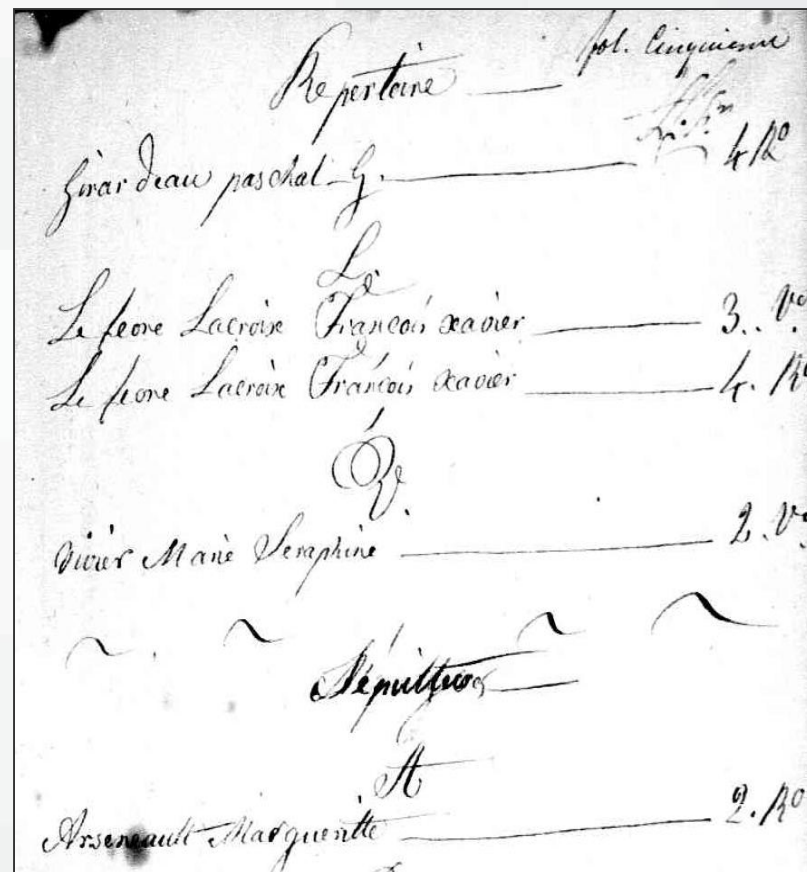 fol. Cinquieme
Repertoire
Girardeau paschal G. 4 Ro
L
Lefevre Lacroix François xavier 3. Vo
Lefevre Lacroix François xavier 4. Ro
V
Vivier Marie Seraphine 2. Vo
Sépultures
A
Arseneault Margueritte 2. Ro